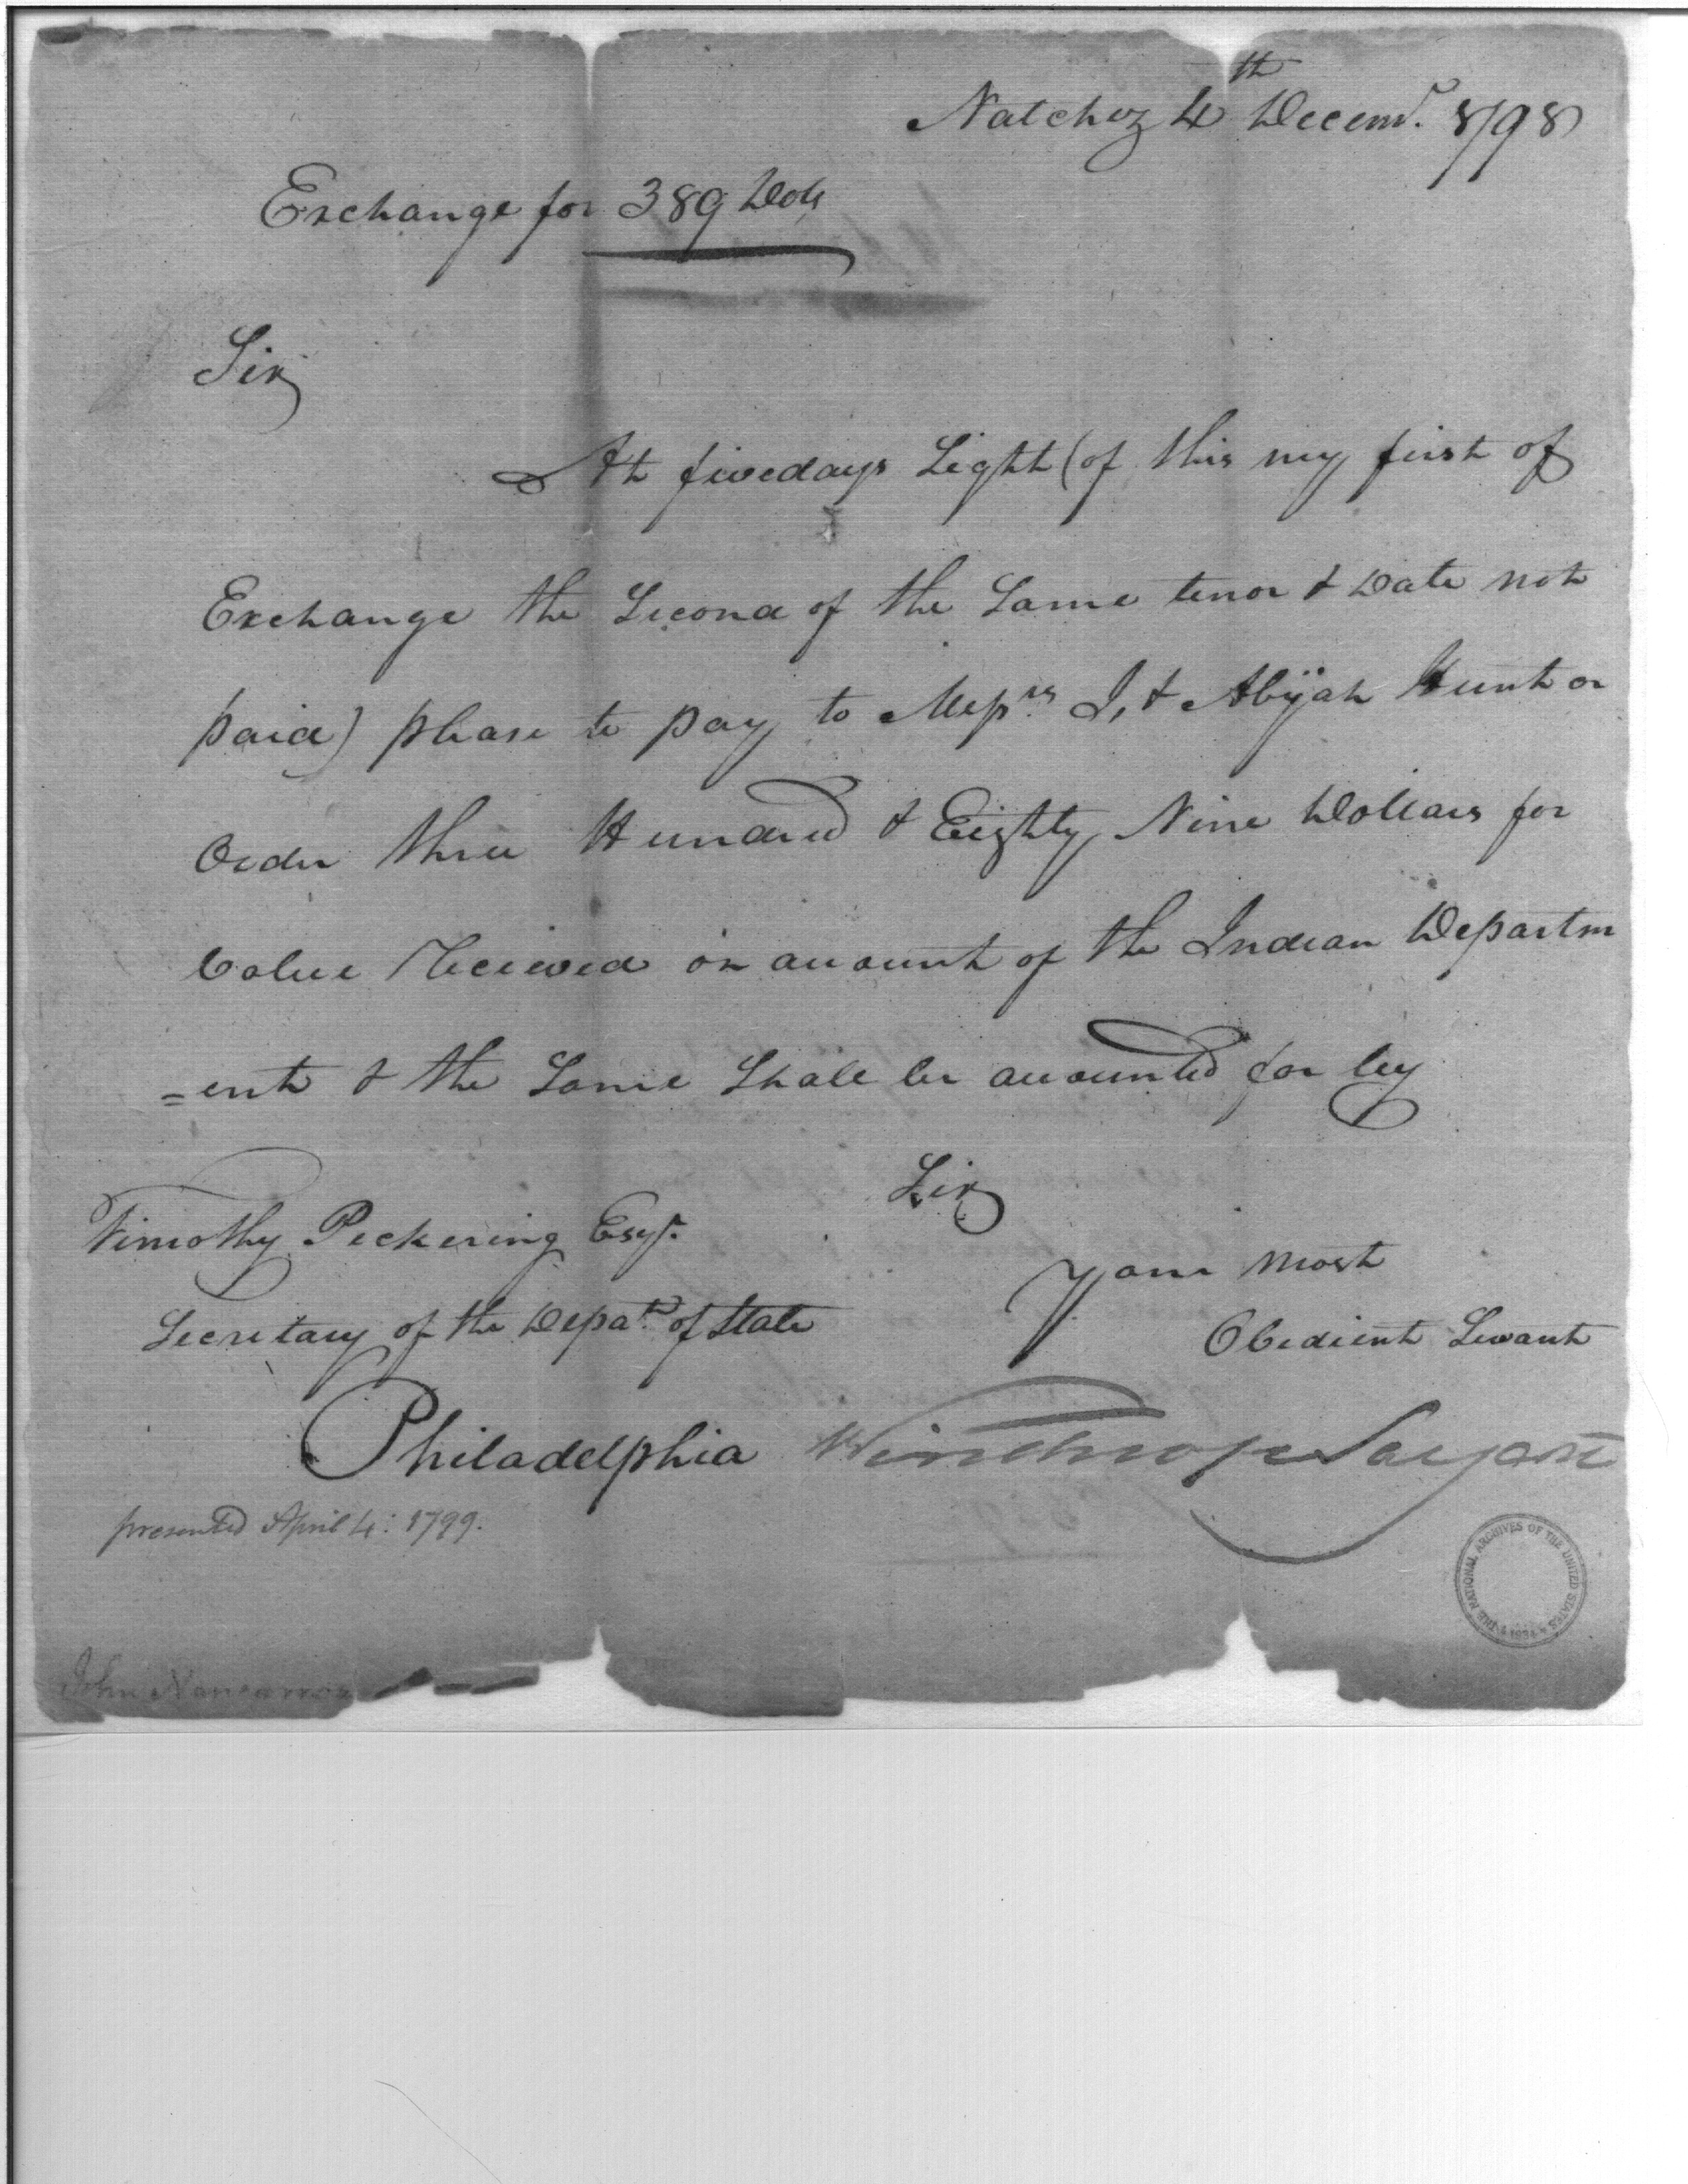 Natchez 4th Decemr. 1798
Exchange for 389 Dols
Sir
At fivedays Sight (of this my first of
Exchange the Second of the Same tenor & Date not
paid) please to pay to Messrs. J, & Abijah Hunt or
Order three Hundred & Eighty Nine Dollars for
Value Received on account of the Indian Departm
=ent & the Same Shall be accounted for by
Sir
Timothy Pickering Esqr.
Yam most
Secretary of the Depat. of State
Obedient Servant
Philadelphia
Winthrop Sargent
presented April 4: 1799.
THE NATIONAL ARCHIVES OF THE UNITED STATES 1934
John